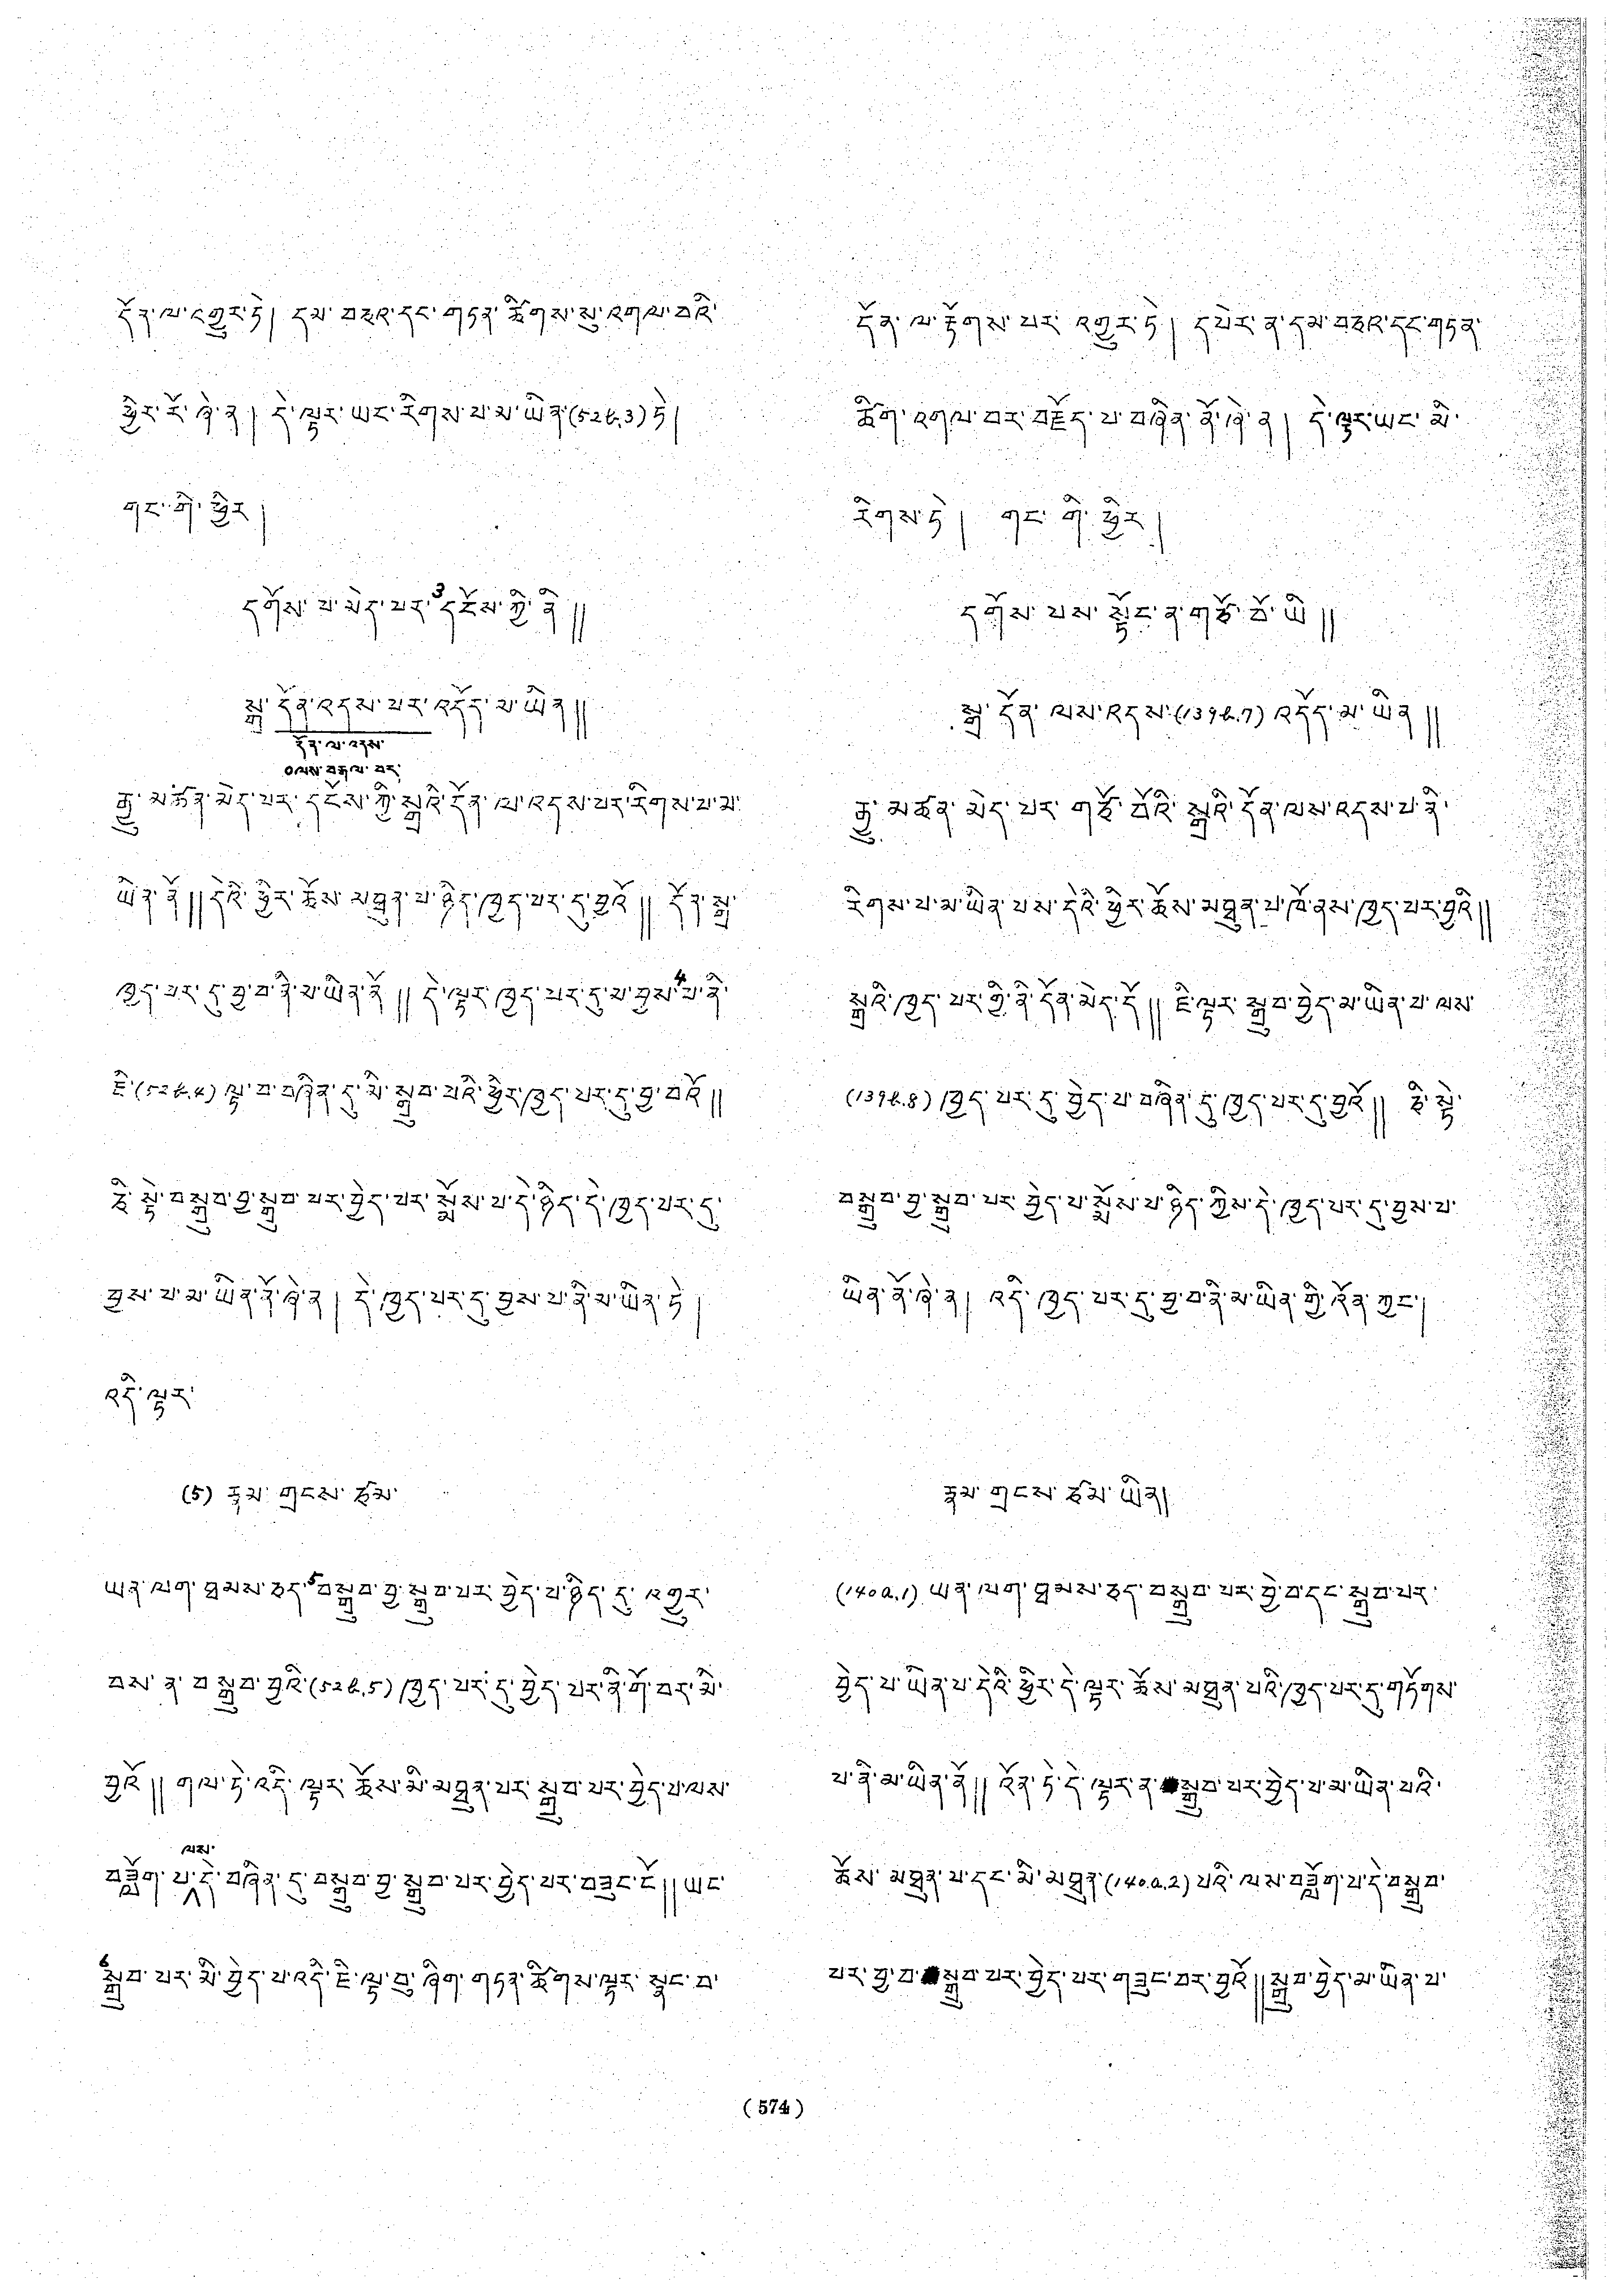 དོན་ལ་འགྱུར་ཏེ། དམ་བཅའ་དང་གཏན་ཚིགས་སུ་འགལ་བའི་
ཕྱིར་རོ་ཞེ་ན། དེ་ལྟར་ཡང་རིགས་པ་མ་ཡིན་(52b,3)ཏེ།
གང་གི་ཕྱིར།
དགོས་པ་མེད་པར་3དངོས་ཀྱི་ནི༎
སྒྲ་དོན་འདས་པར་འདོད་མ་ཡིན༎
དོན་ལ་འདས་
0ལས་བརྒལ་བར་
རྒྱུ་མཚན་མེད་པར་དངོས་ཀྱི་སྒྲའི་དོན་ལ་འདས་པར་རིགས་པ་མ་
ཡིན་ནོ༎དེའི་ཕྱིར་ཆོས་མཐུན་པ་ཉིད་ཁྱད་པར་དུ་བྱའོ༎ དོན་སྒྲ་
ཁྱད་པར་དུ་བྱ་བ་ནི་མ་ཡིན་ནོ༎ དེ་ལྟར་ཁྱད་པར་དུ་མ་བྱས་4པ་ནི་
ཇི་(52b,4)ལྟ་བ་བཞིན་དུ་མི་སྒྲུབ་པའི་ཕྱིར་ཁྱད་པར་དུ་བྱ་བའོ༎
ཅི་སྟེ་བསྒྲུབ་བྱ་སྒྲུབ་པར་བྱེད་པར་སྨོས་པ་དེ་ཉིད་དེ་ཁྱད་པར་དུ་
བྱས་པ་མ་ཡིན་ནོ་ཞེ་ན། དེ་ཁྱད་པར་དུ་བྱས་པ་ནི་མ་ཡིན་ཏེ།
འདི་ལྟར་
(5) རྣམ་གྲངས་ཙམ་
ཡན་ལག་ཐམས་ཅད་5བསྒྲུབ་བྱ་སྒྲུབ་པར་བྱེད་པ་ཉིད་དུ་འགྱུར་
བས་ན་བསྒྲུབ་བྱའི་(52b,5)ཁྱད་པར་དུ་བྱེད་པར་ནི་གོ་བར་མི་
བྱའོ༎ གལ་ཏེ་འདི་ལྟར་ཆོས་མི་མཐུན་པར་སྒྲུབ་པར་བྱེད་པ་ལས་
ལས་
བཟློག་པ་དེ་བཞིན་དུ་བསྒྲུབ་བྱ་སྒྲུབ་པར་བྱེད་པར་བཟུང་ངོ༎ཡང་
6སྒྲུབ་པར་མི་བྱེད་པ་འདི་ཇི་ལྟ་བུ་ཞིག་གཏན་ཚིགས་ལྟར་སྣང་བ་
དོན་ལ་རྟོགས་པར་འགྱུར་ཏེ། དཔེར་ན་དམ་བཅའ་དང་གཏན་
ཚིག་འགལ་བར་བརྗོད་པ་བཞིན་ནོ་ཞེ་ན། དེ་ལྟར་ཡང་མི་
རིགས་ཏེ། གང་གི་ཕྱིར།
དགོས་པས་སྟོང་ན་གཙོ་བོ་ཡི༎
སྒྲ་དོན་ལས་འདས་(139b,7)འདོད་མ་ཡིན༎
རྒྱུ་མཚན་མེད་པར་གཙོ་བོའི་སྒྲའི་དོན་ལས་འདས་པ་ནི་
རིགས་པ་མ་ཡིན་པས་དེའི་ཕྱིར་ཆོས་མཐུན་པ་ཁོ་ནས་ཁྱད་པར་བྱའི༎
སྒྲའི་ཁྱད་པར་གྱི་ནི་དོན་མེད་དོ༎ ཇི་ལྟར་སྒྲུབ་བྱེད་མ་ཡིན་པ་ལས་
(139b,8)ཁྱད་པར་དུ་བྱེད་པ་བཞིན་དུ་ཁྱད་པར་དུ་བྱའོ༎ ཅི་སྟེ་
བསྒྲུབ་བྱ་སྒྲུབ་པར་བྱེད་པ་སྨོས་པ་ཉིད་ཀྱིས་དེ་ཁྱད་པར་དུ་བྱས་པ་
ཡིན་ནོ་ཞེ་ན། འདི་ཁྱད་པར་དུ་བྱ་བ་ནི་མ་ཡིན་གྱི་འོན་ཀྱང་།
རྣམ་གྲངས་ཙམ་ཡིན།
(140a,1)ཡན་ལག་ཐམས་ཅད་བསྒྲུབ་པར་བྱེ་བ་དང་སྒྲུབ་པར་
བྱེད་པ་ཡིན་པ་དེའི་ཕྱིར་དེ་ལྟར་ཆོས་མཐུན་པའི་ཁྱད་པར་དུ་གཏོགས་
པ་ནི་མ་ཡིན་ནོ༎ འོན་ཏེ་དེ་ལྟར་ན་སྒྲུབ་པར་བྱེད་པ་མ་ཡིན་པའི་
ཆོས་མཐུན་པ་དང་མི་མཐུན་(140a,2)པའི་ལས་བཟློག་པ་དེ་བསྒྲུབ་
པར་བྱ་བ་སྒྲུབ་པར་བྱེད་པར་གཟུང་བར་བྱའོ༎སྒྲུབ་བྱེད་མ་ཡིན་པ་
(574)